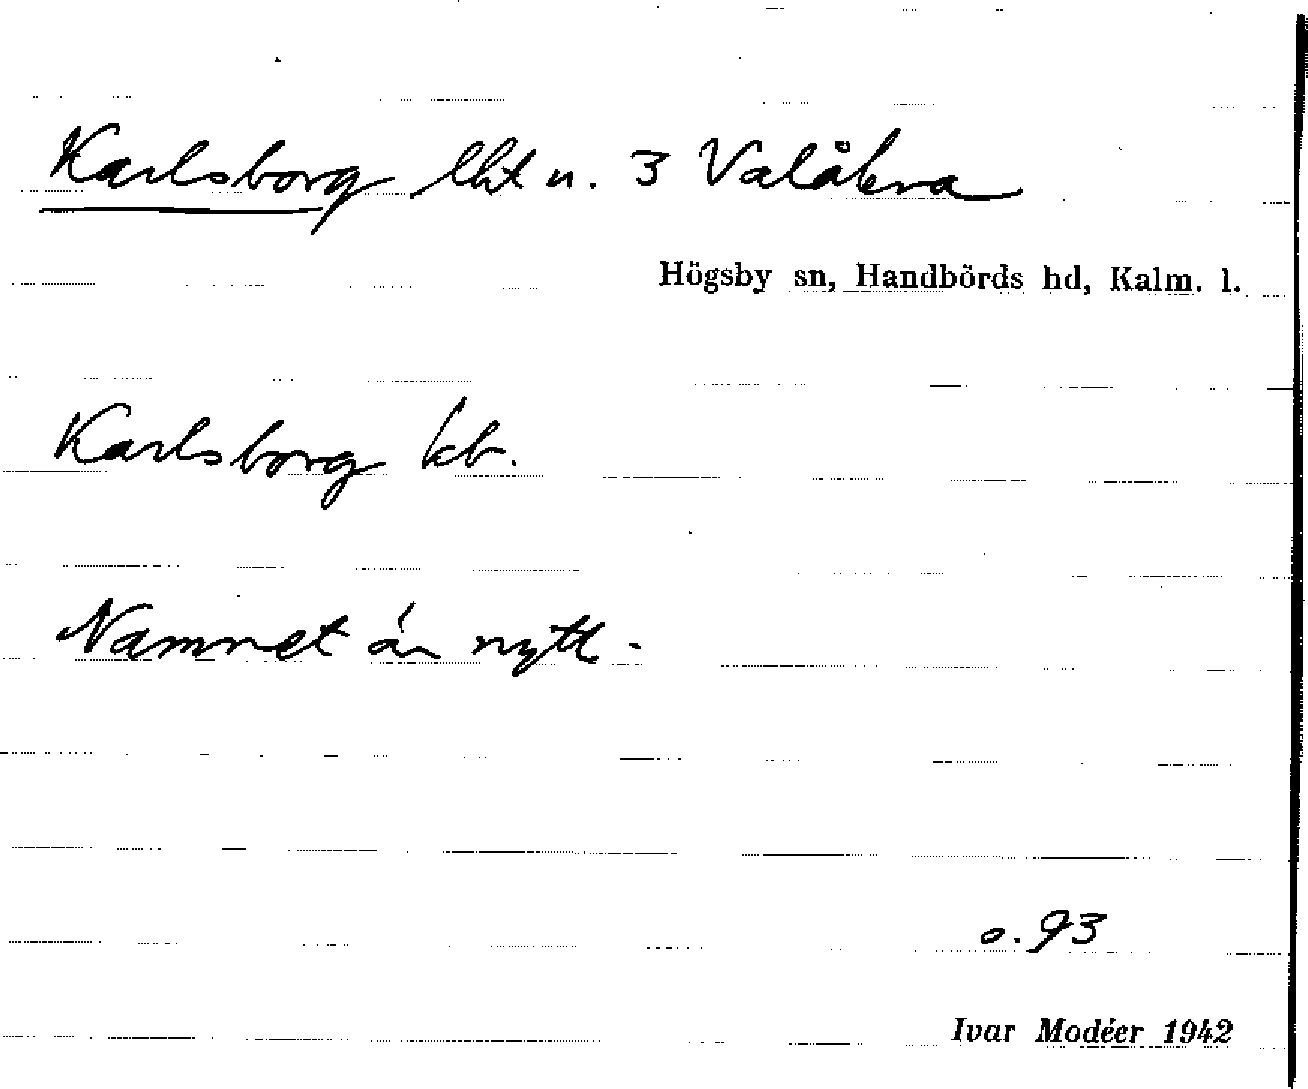 Karlsborg lht u. 3 Valåkra
Högsby sn, Handbörds hd, Kalm. l.
Karlsborg kb.
Namnet är nytt.
o. 93
Ivar Modéer 1942